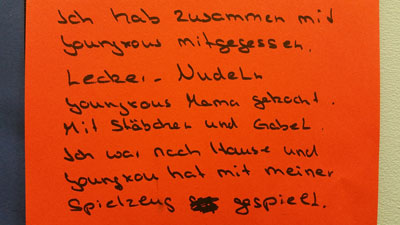 Ich hab zusammen mit
Youngxous mitgegessen.
Lecker- Nudeln
Youngxous Mama gekocht.
Mit Stäbchen und Gabel.
Ich war nach Hause und
Youngxou hat mit meiner
Spielzeug gespielt.